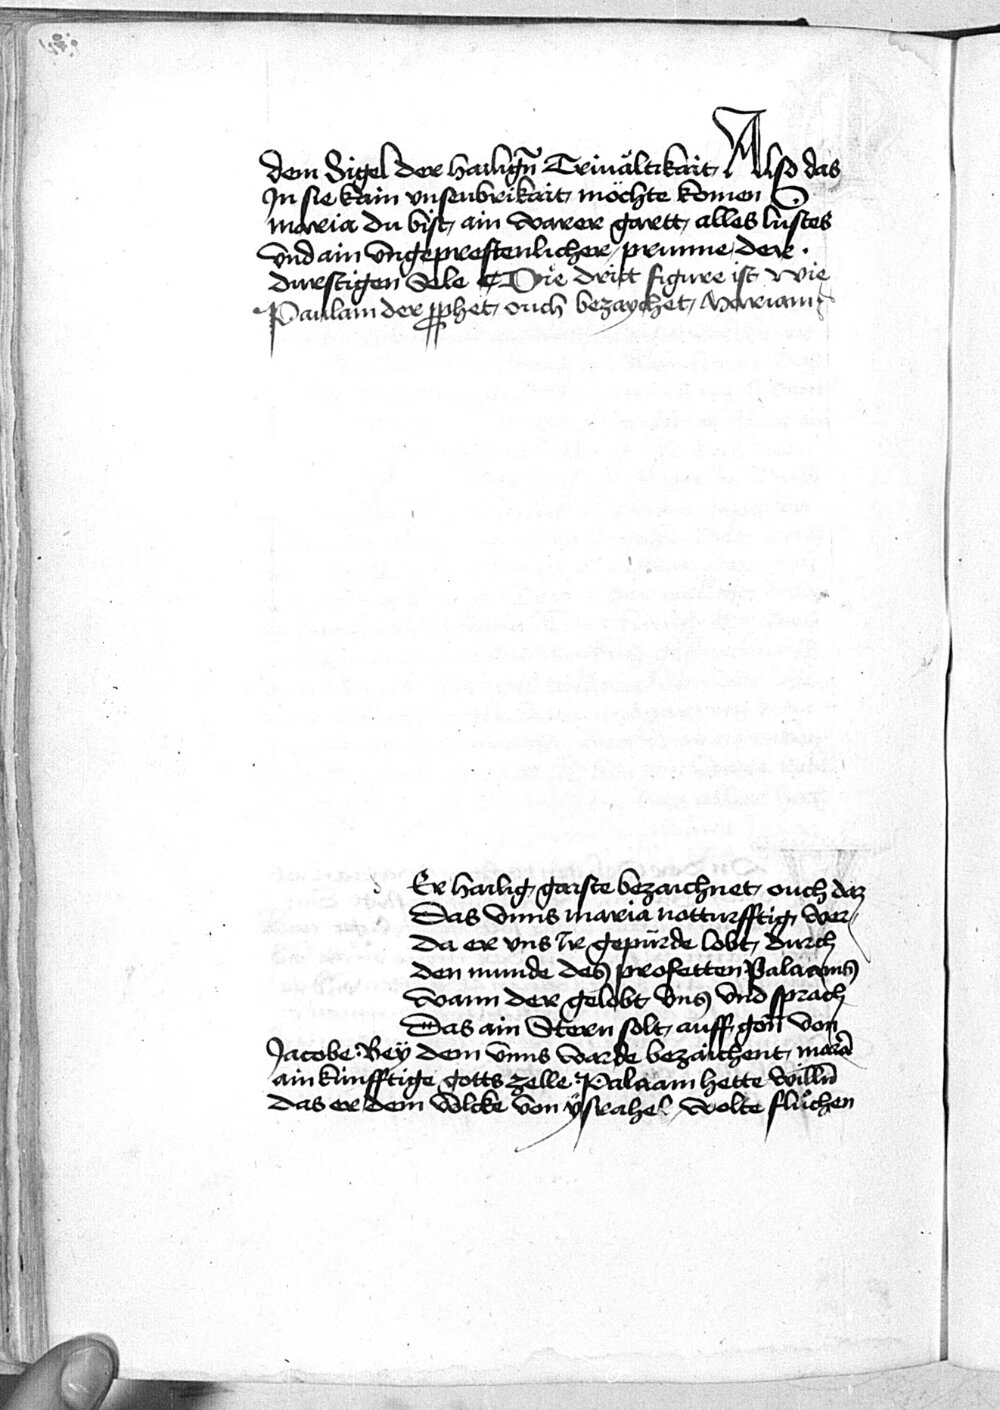 dem Sigel der hailigñ Triualtikait, Also das
In sie kain vnsenbrikait, möchte komen
maria du bist, ain warer gartt, alles lustes
vnd ain vngeprestenlicher, prunne, der.
durstigen Sele Die drist figure ist wie
Paulam der pphet, ouch bezaychet, Mariam
Er hailig, gaiste bezaichnet, ouch daz
Das vnns maria notturfftig, wer
Da er vns Ir gepürde lobt, durch
den munde des profetten Palaams
wann der gelobt vns vnd sprach
Das ain Stern solt, auff gon von
Jacobe: Bey dem vnns warde bezaichent, maria
ain künfftige gotts zelle Palaam hette willn
Das er dem volcke von ysrahel, wolte fluchen